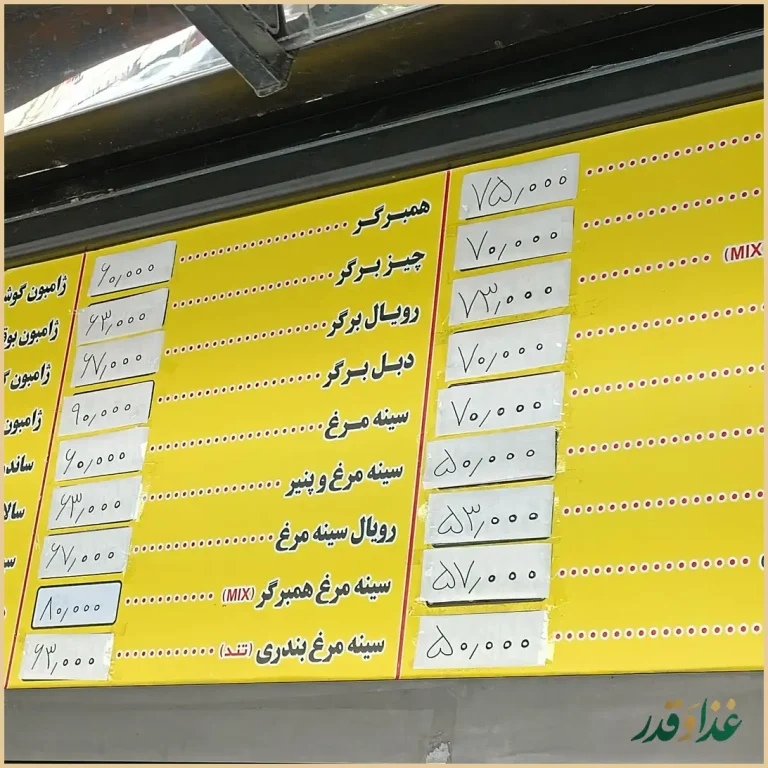 ۷۵٫۰۰۰
۷۰٫۰۰۰
(MIX) ۷۳٫۰۰۰
۷۰٫۰۰۰
۷۰٫۰۰۰
۵۰٫۰۰۰
۵۳٫۰۰۰
۵۷٫۰۰۰
۵۰٫۰۰۰
همبرگر ۶۰٫۰۰۰
چیزبرگر ۶۳٫۰۰۰
رویال برگر ۶۷٫۰۰۰
دبل برگر ۹۰٫۰۰۰
سینه مرغ ۶۰٫۰۰۰
سینه مرغ و پنیر ۶۳٫۰۰۰
رویال سینه مرغ ۶۷٫۰۰۰
سینه مرغ همبرگر (MIX) ۸۰٫۰۰۰
سینه مرغ بندری (تند) ۶۳٫۰۰۰
ژامبون
ژامبون
ژامبون
ژامبون
غذا و قدر